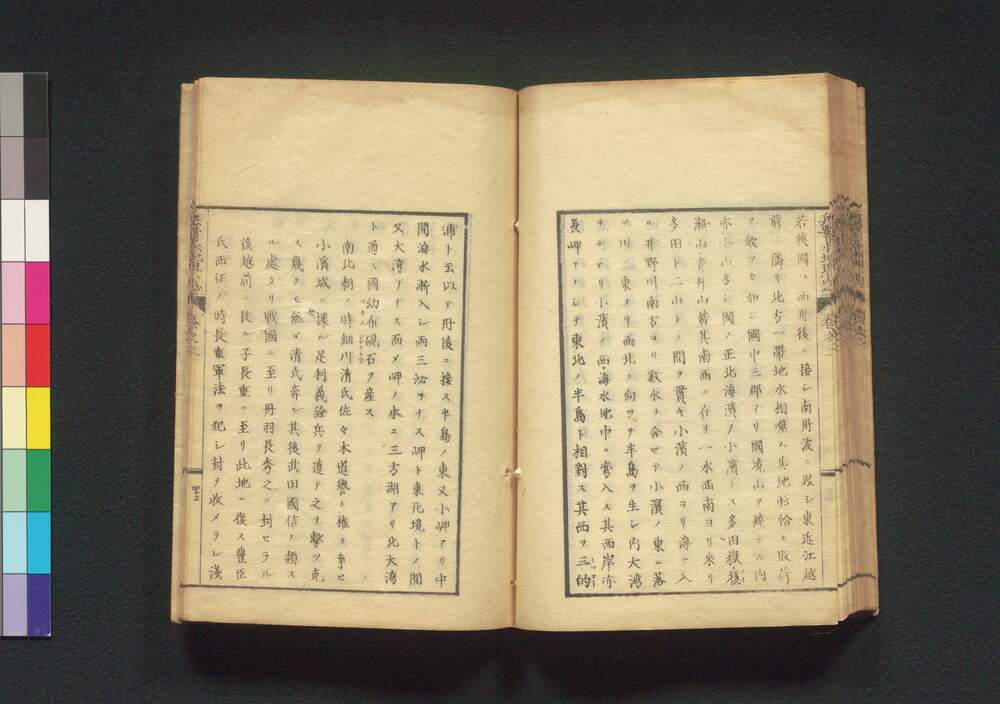 若狹國ハ西丹後ニ接シ南丹波ニ界シ東近江越
前ニ隣リ北方一帶地水相啣ム其地形恰モ敗荷
ヲ敷クカ如シ國中三郡アリ國境山ヲ繞ラス内
亦小山多シ國ノ正北海濱ヲ小濱トス多田嶽後
瀬山青井山皆其南西ニ在リ一水西南ヨリ來リ
多田ト二山トノ間ヲ貫キ小濱ノ西ヨリ海ニ入
ル井野川南方ヨリ數水ヲ合セテ小濱ノ東ニ落
川ノ東ヨリ西北ニ向ツテ半島ヲ生シ内大灣
リ小濱ノ西海水地中ニ彎入ス其西岸亦
長岬ヲトシテ東北ノ半島ト相對ス其西ヲ三的
浦ト云以テ丹後ニ接ス半島ノ東又小岬アリ中
間海水漸入シ兩三泌ヲナス岬ト東北境トノ間
又大湾ヲナス而メ岬ノ本ニ三方湖アリ北大湾
ト通ス國幼布硯石ヲ産ス
南北朝ノ時細川清氏佐々木道譽ト權ヲ爭ヒ
小濱城ニ據ル足利義詮兵ヲ遣テ之ヲ擊ツ克
ス幾クモ無シ清氏奔シ其後武田國信ノ領ス
ル處タリ戰國ニ至リ丹羽長秀之ニ封セラル
後越前ニ徙ル子長重ニ至リ此地ニ復ス豐臣
氏西征ノ時長重軍法ヲ犯シ封ヲ收メラレ淺
四十二